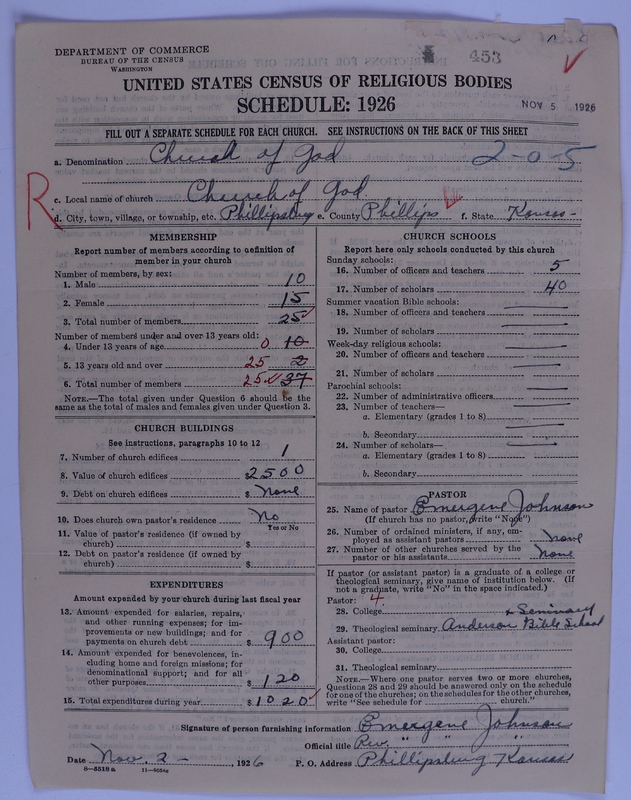 DEPARTMENT OF COMMERCE
BUREAU OF THE CENSUS
WASHINGTON
453
UNITED STATES CENSUS OF RELIGIOUS BODIES
SCHEDULE: 1926
NOV 5 1926
FILL OUT A SEPARATE SCHEDULE FOR EACH CHURCH. SEE INSTRUCTIONS ON THE BACK OF THIS SHEET
a. Denomination Church of God 2-0-5
R
c. Local name of church Church of God
d. City, town, village, or township, etc. Phillipsburg e. County Phillips f. State Kansas -
MEMBERSHIP
Report number of members according to definition of
member in your church
Number of members, by sex:
1. Male 10
2. Female 15
3. Total number of members 25
Number of members under and over 13 years old:
4. Under 13 years of age 0 10
5. 13 years old and over 25 2
6. Total number of members 25 37
NOTE.—The total given under Question 6 should be the
same as the total of males and females given under Question 3.
CHURCH BUILDINGS
See instructions, paragraphs 10 to 12
7. Number of church edifices 1
8. Value of church edifices $ 2500
9. Debt on church edifices $ None
10. Does church own pastor's residence No
Yes or No
11. Value of pastor's residence (if owned by
church) $
12. Debt on pastor's residence (if owned by
church) $
EXPENDITURES
Amount expended by your church during last fiscal year
13. Amount expended for salaries, repairs,
and other running expenses; for im-
provements or new buildings; and for
payments on church debt $ 900
14. Amount expended for benevolences, in-
cluding home and foreign missions; for
denominational support; and for all
other purposes $ 120
15. Total expenditures during year $ 1020
CHURCH SCHOOLS
Report here only schools conducted by this church
Sunday schools:
16. Number of officers and teachers 5
17. Number of scholars 40
Summer vacation Bible schools:
18. Number of officers and teachers
19. Number of scholars
Week-day religious schools:
20. Number of officers and teachers
21. Number of scholars
Parochial schools:
22. Number of administrative officers
23. Number of teachers—
a. Elementary (grades 1 to 8)
b. Secondary
24. Number of scholars—
a. Elementary (grades 1 to 8)
b. Secondary
PASTOR
25. Name of pastor Emergene Johnson
(If church has no pastor, write "None")
26. Number of ordained ministers, if any, em-
ployed as assistant pastors None
27. Number of other churches served by the
pastor or his assistants None
If pastor (or assistant pastor) is a graduate of a college or
theological seminary, give name of institution below. (If
not a graduate, write "No" in the space indicated.)
Pastor: 4
28. College + Seminary
29. Theological seminary Anderson Bible School
Assistant pastor:
30. College
31. Theological seminary
NOTE.—Where one pastor serves two or more churches,
Questions 28 and 29 should be answered only on the schedule
for one of the churches; on the schedules for the other churches,
write "See schedule for church."
Signature of person furnishing information Emergene Johnson
Official title Rev. " "
Date Nov. 2 - , 1926 P. O. Address Phillipsburg Kansas
8—5518a 11—9054a